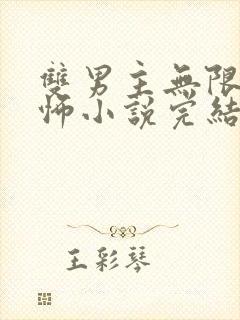 雙男主無限
怖小說完結
王彩琴